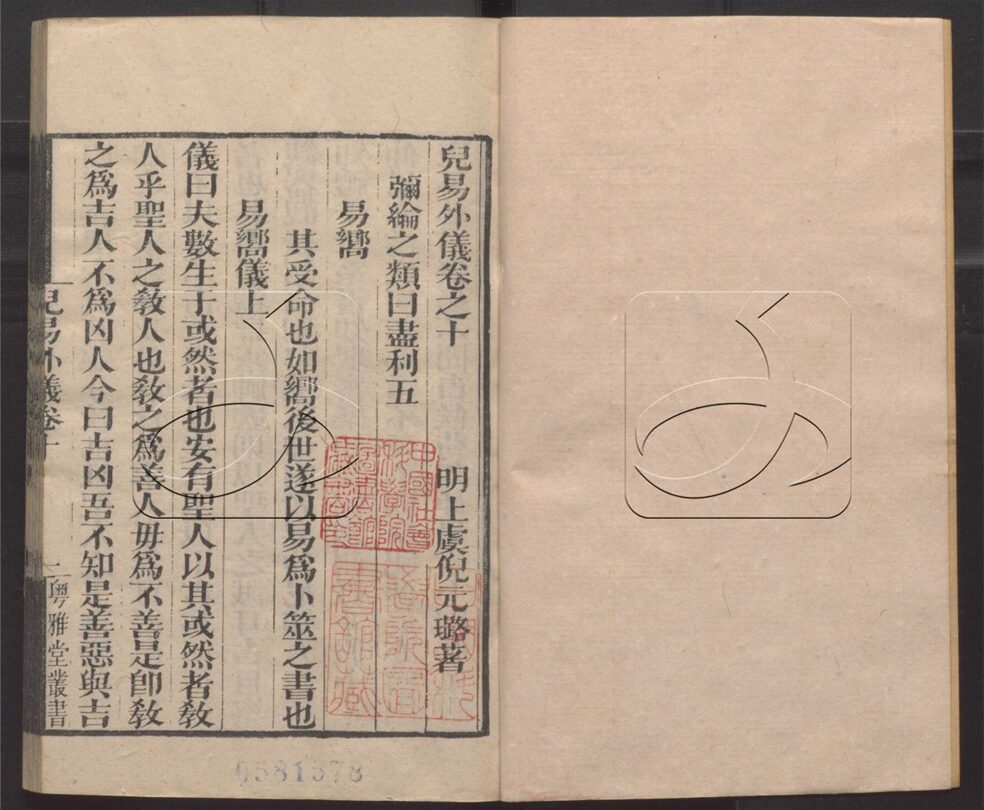 兒易外儀卷之十
明上虞倪元璐著
彌綸之類曰盡利五
易嚮
其受命也如嚮後世遂以易爲卜筮之書也
易嚮儀上
儀曰夫數生于或然者也安有聖人以其或然者敎
人乎聖人之敎人也敎之爲善人毋爲不善是卽敎
之爲吉人不爲凶人今曰吉凶吾不知是善惡與吉
兒易外儀卷十
一
粵雅堂叢書
中國社會
科學院
0581378